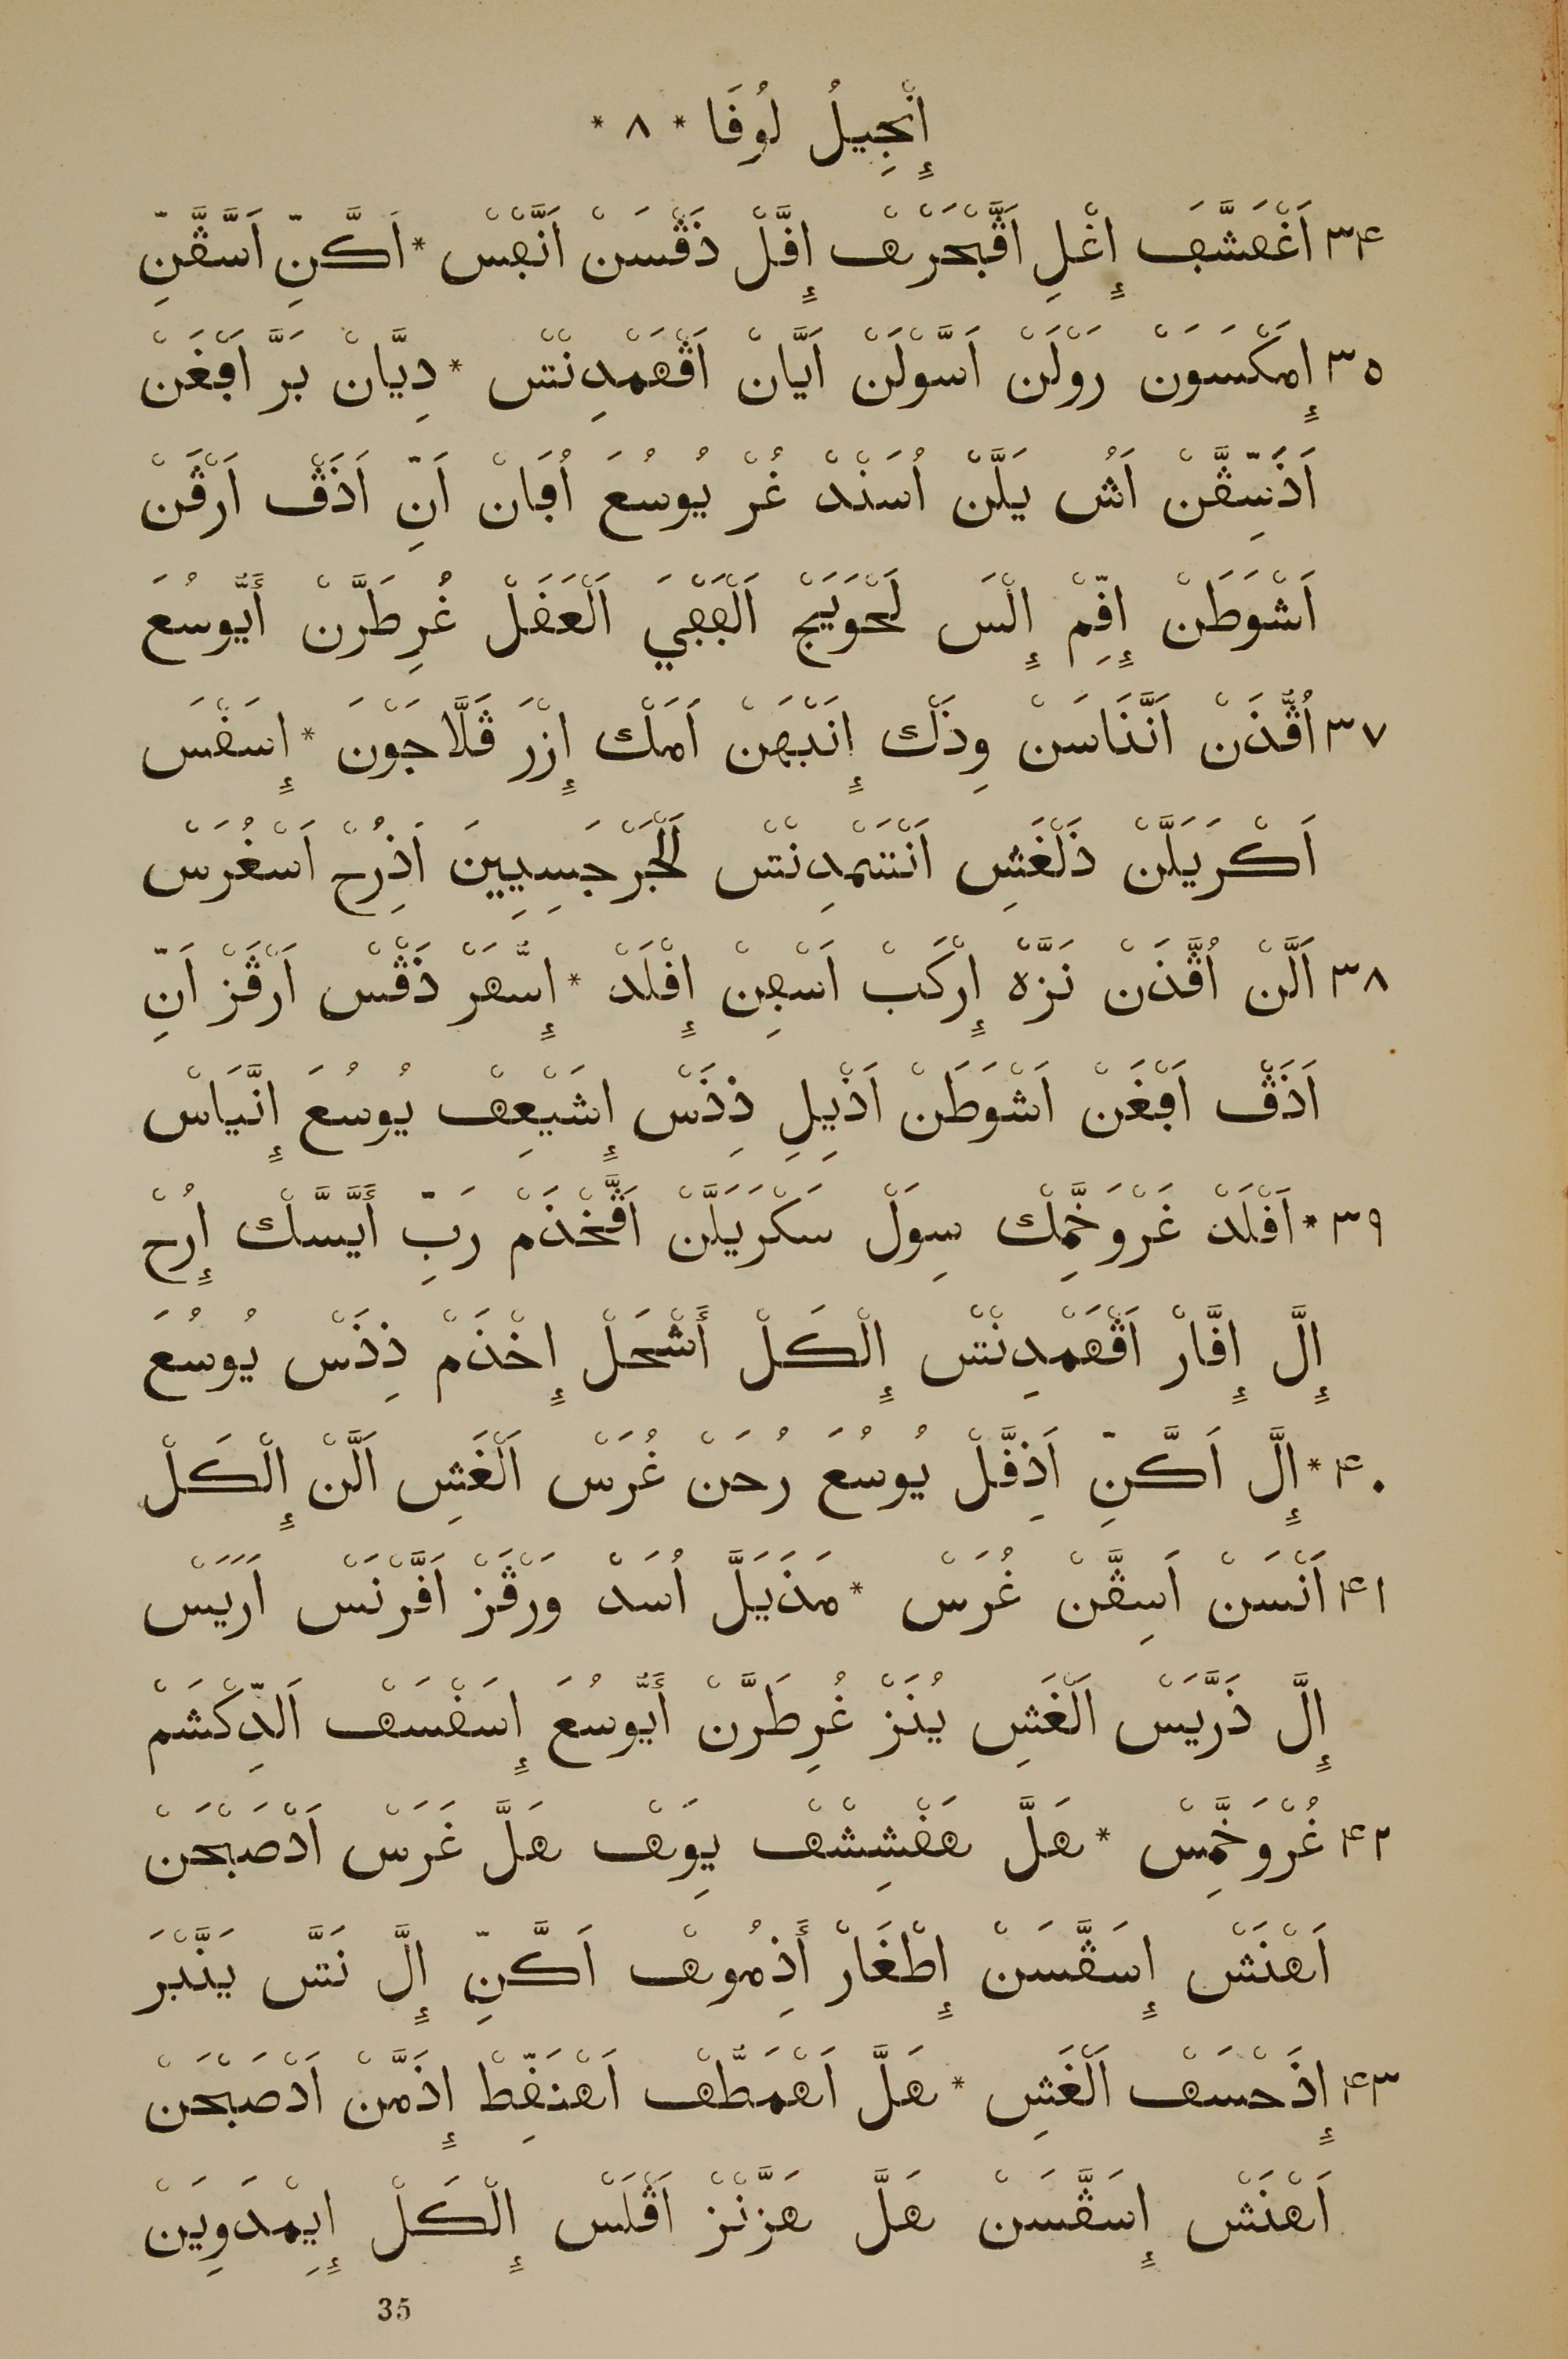 إِنْجِيلُ لُوقَا * ٨ *
٣٤ اَغْهَشَّڢَ إِغْلِ اَڨَّبْحَرْهْ إِڢَّلْ ذَڨْسَنْ اَنَّڢْسْ * اَكَّنِّ اَسَّڨَّنِّ
٣٥ إِمَكْسَوَنْ رَوْلَنْ اَسَّوْلَنْ اَيَّانْ اَڨْهَمْدِنْتْ * دِيَّانْ بَرَّ اَڢْغَنْ
اَذَسِّڨَّنْ اَشُ يَلَّنْ اُسَنْدْ غُرْ يُوسُعَ اُڢَانْ اَنِّ اَذَڨْ اَرْڨَنْ
اَشْوَطَنْ إِڧِّمْ إِلْسَ لَحْوَيَجْ اَلْڢَهْيَ اَلْعَقَلْ غُرِطَرَّنْ أَيُّوسُعَ
٣٧ اُڨَّذَنْ اَنَّنَاسَنْ وِذَكْ إِنَذْبَهَنْ اَمَكْ إِزْرَ ڨَلَّاجَوْنَ * إِسَڢْسَ
اَكْرَيَلَّنْ ذَلْغَشِ اَنْتَمْدِنْتْ لَجْرَجَسِيِينَ اَذِرُحْ اَسْغُرَسْ
٣٨ اَلَّنْ اُڨَّذَنْ نَزَّهْ إِرْكَبْ اَسْڢِنْ إِڧْلَدْ * إِسُّهَرْ ذَڨْسْ اَرْڨَزْ اَنِّ
اَذَڨْ اَڢْغَنْ اَشْوَطَنْ اَذْيِلِ ذِذَسْ إِشَيْعِهْ يُوسُعَ إِنَّيَاسْ
٣٩ * اَڧْلَدْ غَرْوَخَّمِكْ سِوَلْ سَكْرَيَلَّنْ اَڨَّخْذَمْ رَبِّ أَيَسَّكْ إِرُحْ
إِلَّ إِڧَّارْ اَڨْهَمْدِنْتْ إِلْكَلْ أَشْحَلْ إِخْذَمْ ذِذَسْ يُوسُعَ
٤٠ * إِلَّ اَكَّنِّ اَذِڧَّلْ يُوسُعَ رُحَنْ غُرَسْ اَلْغَشِ اَلَّنْ إِلْكَلْ
٤١ اَنْسَنْ اَسِڨَّنْ غُرَسْ * مَذَيَلَّ اُسَدْ وَرْڨَزْ اَڧَّرْنَسْ اَرَيَسْ
إِلَّ ذَرَّيَسْ اَلْغَشِ يُنَزْ غُرِطَرَّنْ أَيُّوسُعَ إِسَڢْسَهْ اَلدِّكْشَمْ
٤٢ غُرْوَخَّمِسْ * هَلَّ هَڧْشِشْهْ يِوَهْ هَلَّ غَرَسْ اَذْصَبْحَنْ
اَهْنَشْ إِسَڨَّسَنْ إِطْغَارْ أَذِمُوهْ اَكَّنِّ إِلَّ نَتَّ يَنَّبْرَ
٤٣ إِذَحْسَهْ اَلْغَشِ * هَلَّ اَهْمَطُّهْ اَهْنَڧِّطْ إِذَمَّنْ اَذْصَبْحَنْ
اَهْنَشْ إِسَڨَّسَنْ هَلَّ هَزَّنْزْ اَڨْلَسْ إِلْكَلْ إِيِمْدَوِيَنْ
35